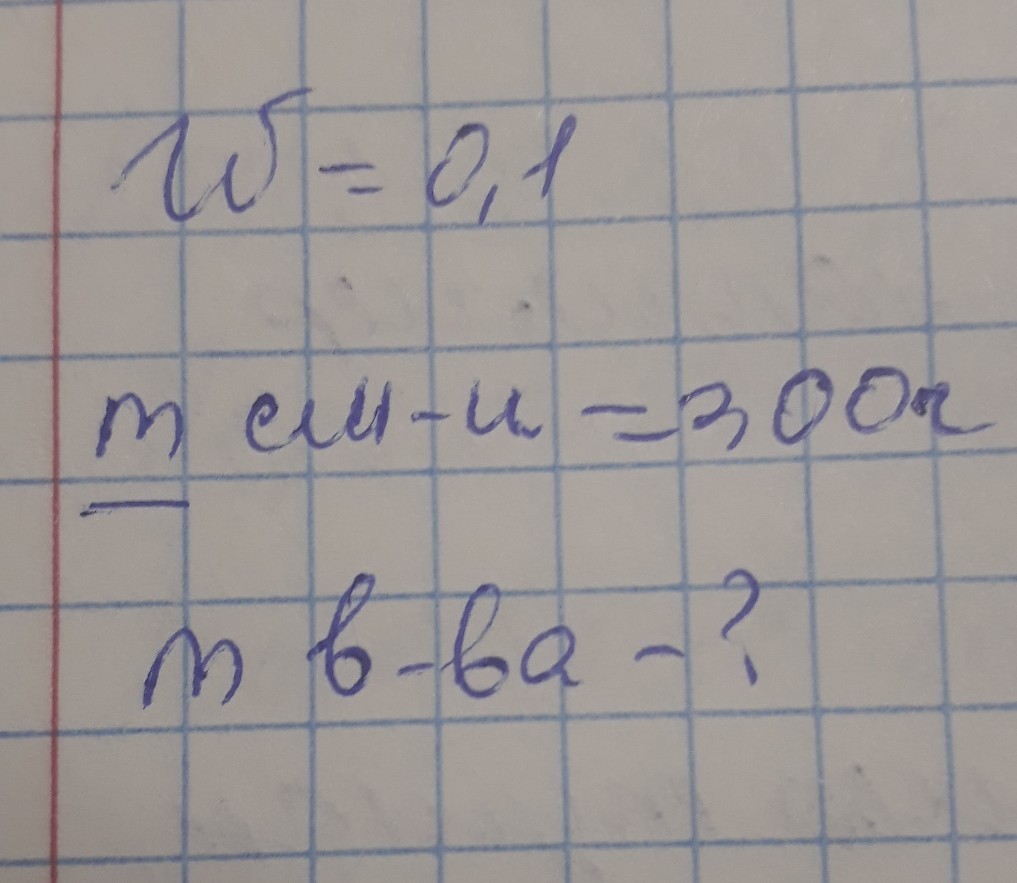 W = 0,1
m см-и = 300г
m в-ва - ?